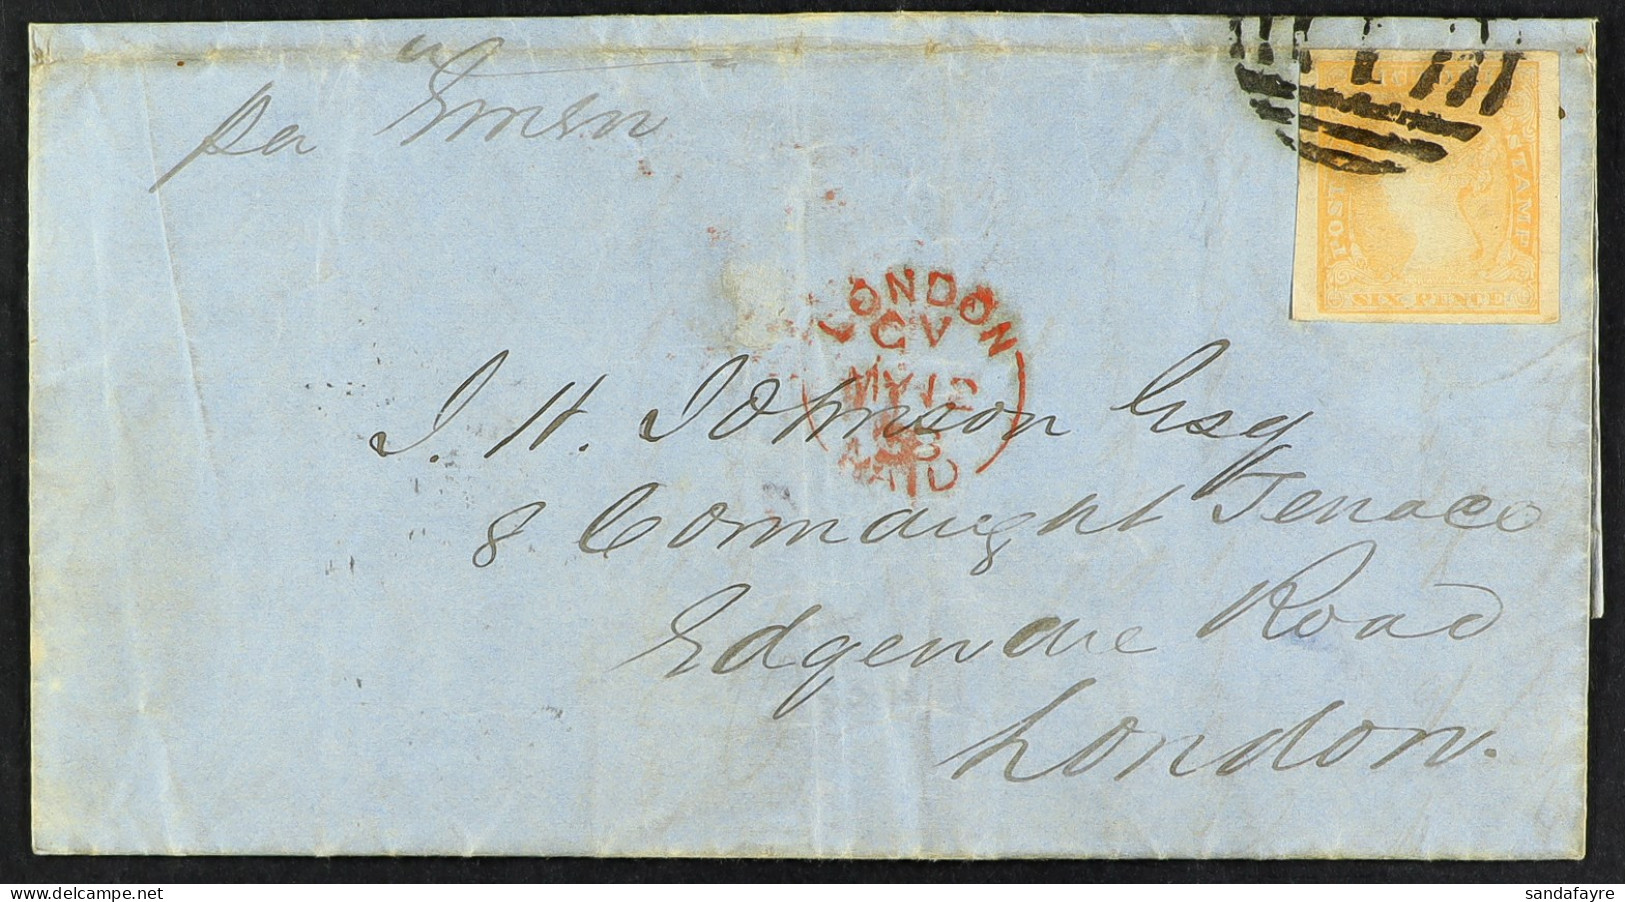 pr "Emen"
STAMP
SIX PENCE
LONDON
CV
MY 12
58
PAID
J. H. Johnson Esq
8 Connaught Terrace
Edgeware Road
London.
delcampe.net
sandafayre